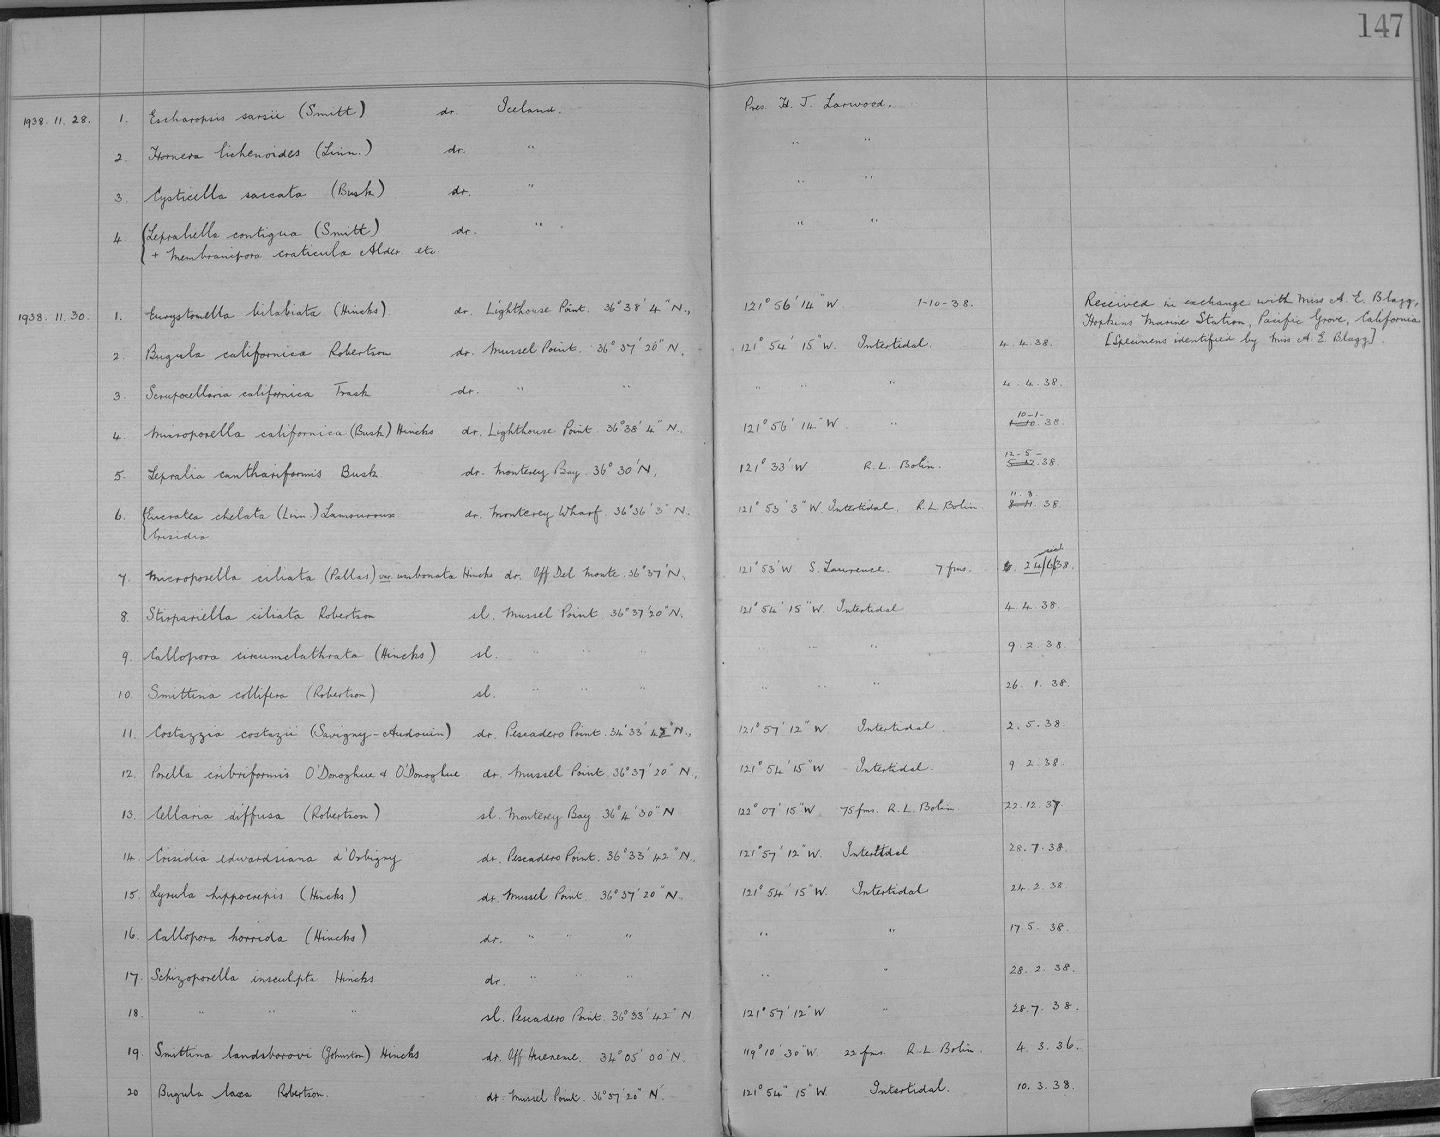 147
1938. 11. 28. 1. Escharopsis sarsii (Smitt) dr. Iceland. Pres. H. J. Larwood.
2. Hornera lichenoides (Linn.) dr. " " "
3. Cysticella saccata (Busk) dr. " " "
4. Lepraliella contigua (Smitt) dr. " " "
+ Membranipora craticula Alder. etc
1938. 11. 30. 1. Eurystomella bilabiata (Hincks) dr. Lighthouse Point. 36° 38' 4" N., 121° 56' 14" W. 1-10-38. Received in exchange with Miss A. E. Blagg,
Hopkins Marine Station, Pacific Grove, California
[Specimens identified by Miss A. E. Blagg].
2. Bugula californica Robertson dr. Mussel Point. 36° 37' 20" N. 121° 54' 15" W. Intertidal. 4. 4. 38.
3. Scrupocellaria californica Trask dr. " " " " " 4. 4. 38.
4. Microporella californica (Busk) Hincks dr. Lighthouse Point. 36° 38' 4" N. 121° 56' 14" W " 10-1- 38.
5. Lepralia canthariformis Busk dr. Monterey Bay. 36° 30' N. 121° 33' W R. L. Bolin. 12-5- 38.
6. Eucratea chelata (Linn.) Lamouroux dr. Monterey Wharf. 36° 36' 3" N. 121° 53' 3" W. Intertidal. R. L. Bolin 11. 8 38.
Crisidia
7. Microporella ciliata (Pallas) var. umbonata Hincks dr. Off Del Monte. 36° 37' N. 121° 53' W S. Lawrence. 7 fms. 24/6/38.
8. Stirpariella ciliata Robertson sl. Mussel Point. 36° 37' 20" N. 121° 54' 15" W. Intertidal 4. 4. 38.
9. Callopora circumclathrata (Hincks) sl. " " " " " " 9. 2. 38.
10. Smittina collifera (Robertson) sl. " " " " " " 26. 1. 38.
11. Costazzia costazii (Savigny-Audouin) dr. Pescadero Point. 34° 33' 42" N., 121° 57' 12" W Intertidal. 2. 5. 38
12. Porella cribriformis O'Donoghue & O'Donoghue dr. Mussel Point. 36° 37' 20" N., 121° 54' 15" W Intertidal. 9 2. 38.
13. Cellaria diffusa (Robertson) sl. Monterey Bay 36° 4' 30" N 122° 07' 15" W 75 fms. R. L. Bolin. 22. 12. 37
14. Crisidia edwardsiana d'Orbigny dr. Pescadero Point. 36° 33' 42" N. 121° 57' 12" W. Intertidal 28. 7. 38.
15. Lyrula hippocrepis (Hincks) dr. Mussel Point 36° 37' 20" N. 121° 54' 15" W. Intertidal 24. 2. 38
16. Callopora horrida (Hincks) dr. " " " " " 17. 5. 38.
17. Schizoporella insculpta Hincks dr. " " " " " 28. 2. 38.
18. " " " sl. Pescadero Point. 36° 33' 42" N 121° 57' 12" W " 28. 7. 38.
19. Smittina landsborovi (Johnston) Hincks dr. Off Hueneme. 34° 05' 00" N. 119° 10' 30" W. 22 fms. R. L. Bolin. 4. 3. 36.
20 Bugula laxa Robertson. dr. Mussel Point. 36° 37' 20" N. 121° 54" 15" W. Intertidal. 10. 3. 38.